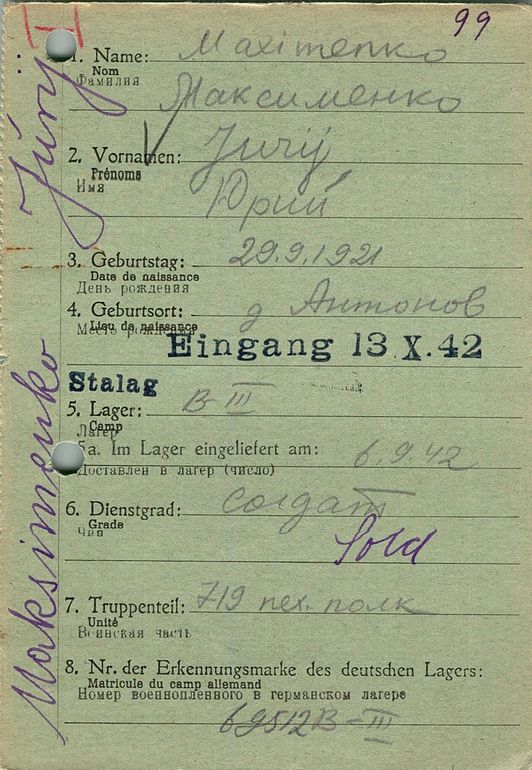 99
1. Name: Maximenko
Nom
Фамилия Максименко
2. Vornamen: Jurij
Prénoms
Имя Юрий
3. Geburtstag: 29.9.1921
Date de naissance
День рождения
4. Geburtsort: д Антонов
Lieu de naissance
Место рождения
Eingang 13 X. 42
Stalag
5. Lager: B-III
Camp
Лагерь
5a. Im Lager eingeliefert am: 6.9.42
Доставлен в лагерь (число)
6. Dienstgrad: солдат
Grade
Чин Sold
7. Truppenteil: 719 пех. полк
Unité
Воинская часть
8. Nr. der Erkennungsmarke des deutschen Lagers:
Matricule du camp allemand
Номер военнопленного в германском лагере
69512 B-III
Maksimenko Jürij